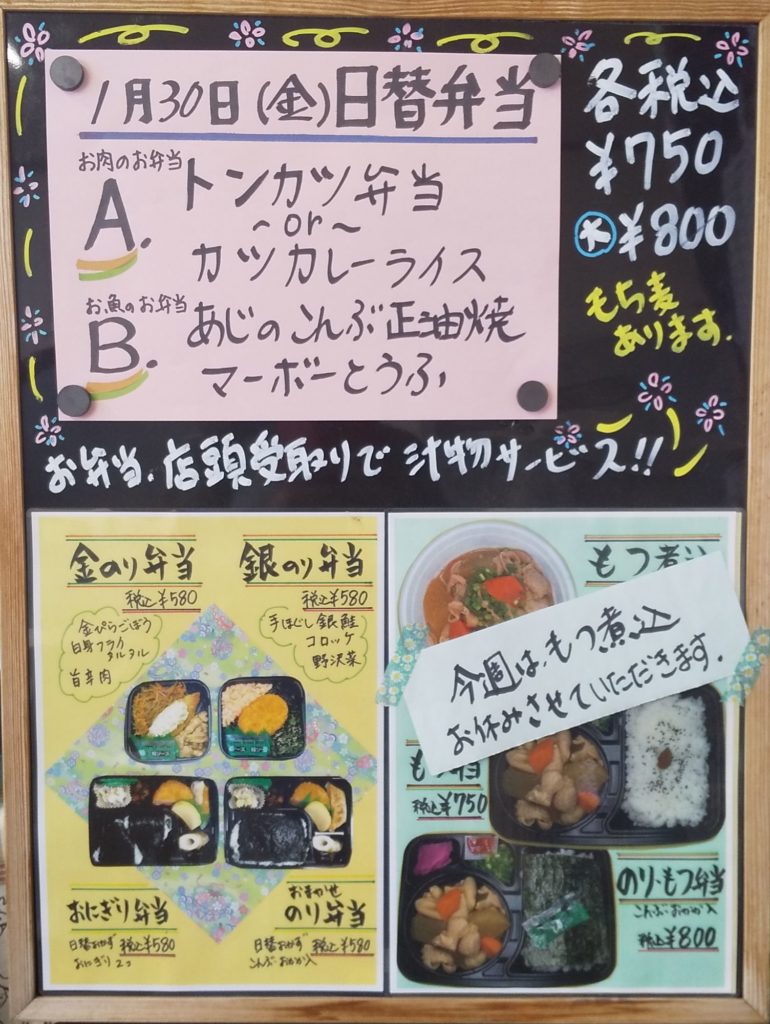 1月30日(金)日替弁当
お肉のお弁当
A.
トンカツ弁当
~or~
カツカレーライス
お魚のお弁当
B.
あじのこんぶ正油焼
マーボーとうふ
各税込
¥750
大¥800
もち麦
あります.
お弁当、店頭受取りで汁物サービス!!
金のり弁当
税込¥580
金ぴらごぼう
白身フライ
タルタル
旨辛肉
銀のり弁当
税込¥580
手ほぐし銀鮭
コロッケ
野沢菜
おにぎり弁当
日替おかず
おにぎり2コ
税込¥580
おまかせ
のり弁当
日替おかず
こんぶ・おかか入
税込¥580
もつ煮込
今週は、もつ煮込
お休みさせていただきます.
もつ弁当
税込¥750
のり・もつ弁当
こんぶ・おかか入
税込¥800